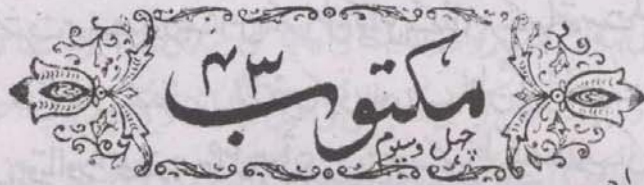 مکتوب ۴۳
چهل و سیوم